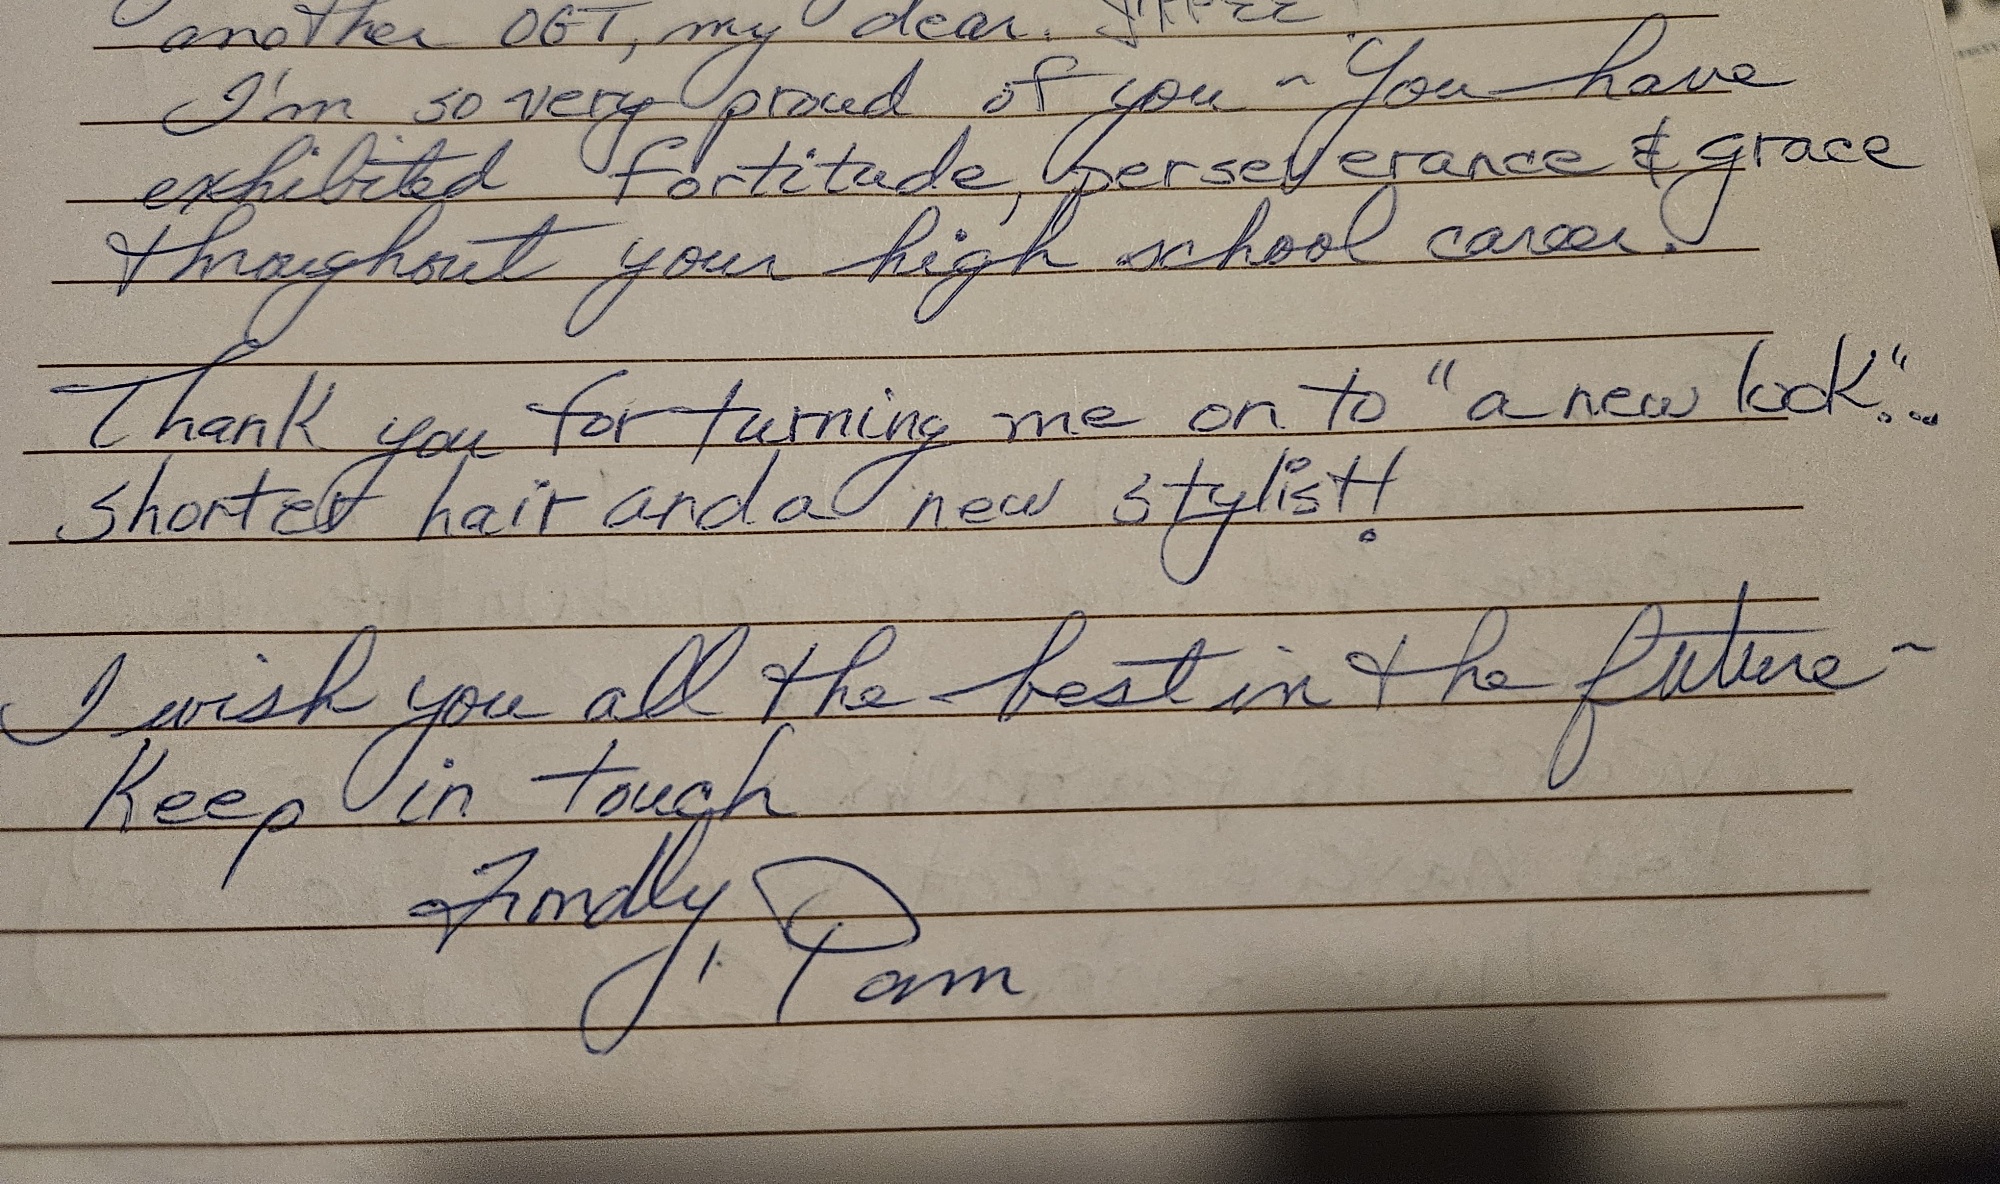 another OGT, my dear.
I'm so very proud of you ~ You have
exhibited fortitude, perseverance & grace
throughout your high school career.
Thank you for turning me on to "a new look"...
shorter hair and a new stylist!!
I wish you all the best in the future ~
Keep in touch
Fondly,
Pam